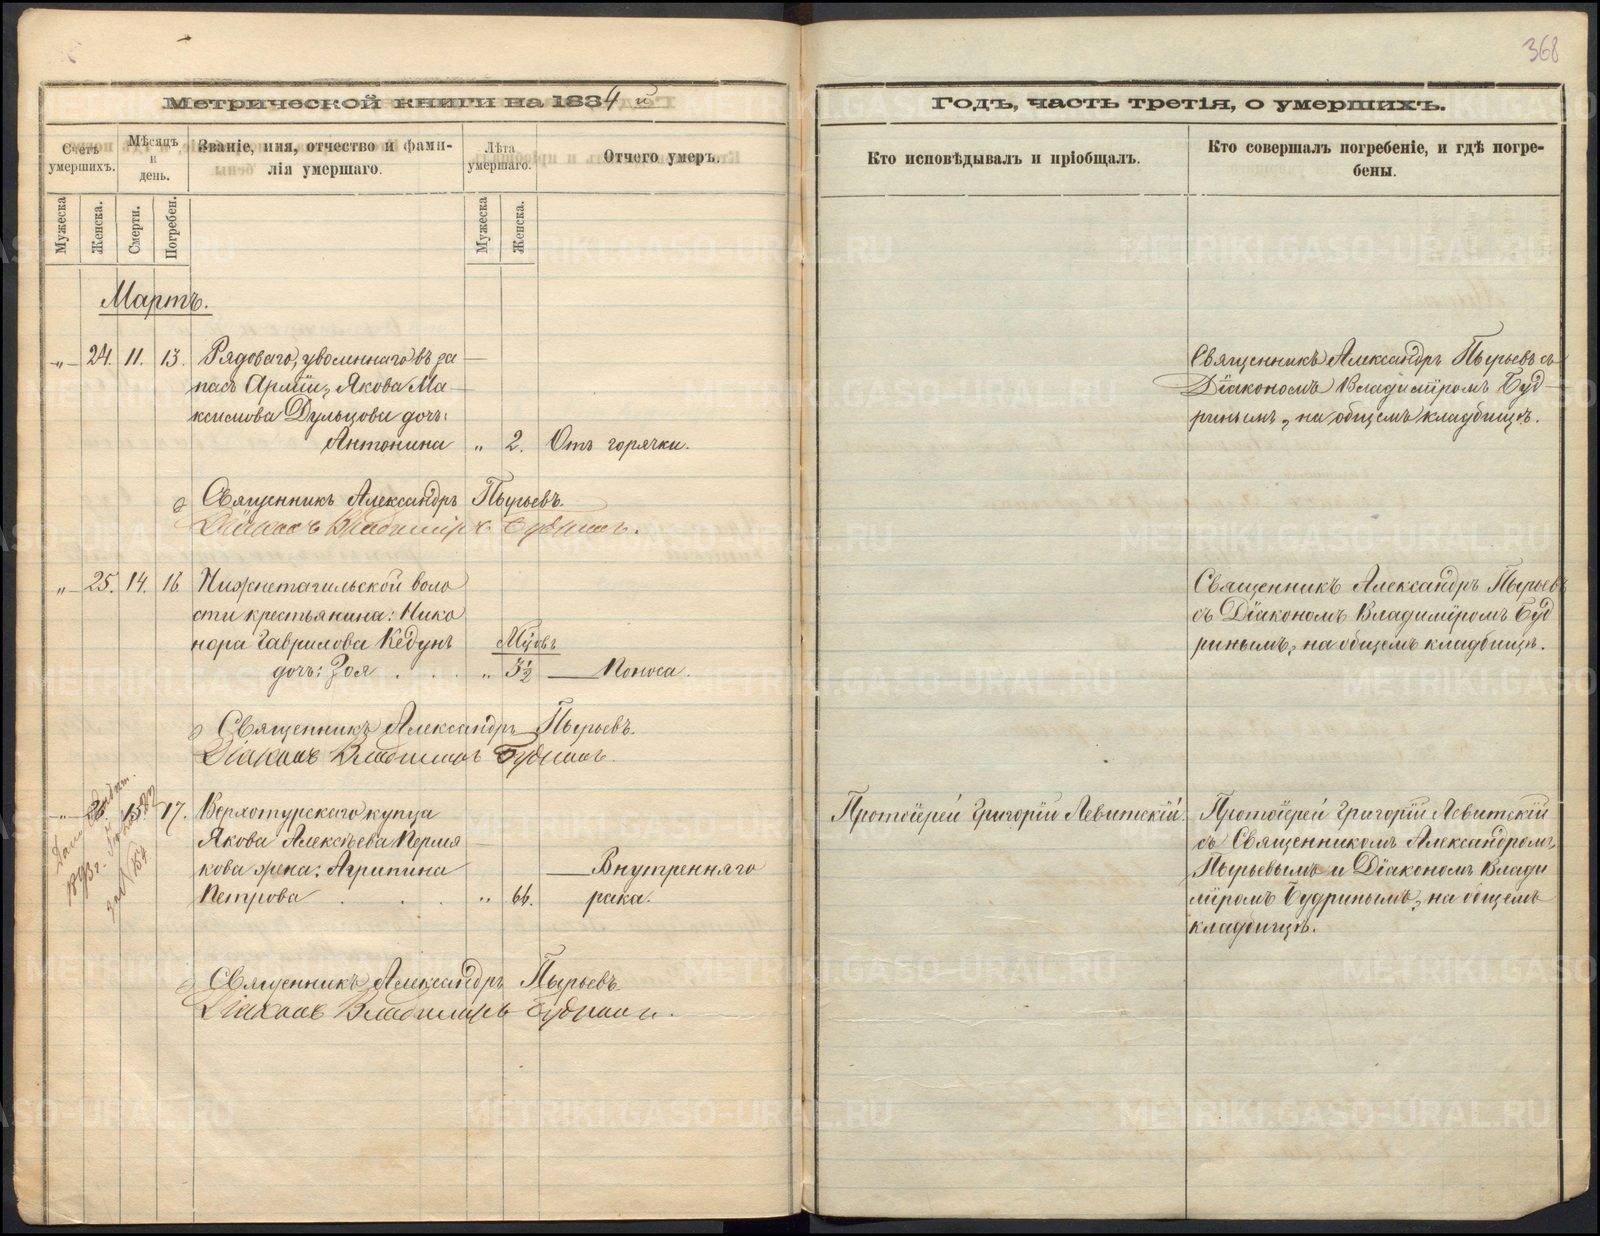 368
Метрической книги на 1884 й
Годъ, часть третія, о умершихъ.
Счетъ умершихъ.
Мѣсяцъ и день.
Званіе, имя, отчество и фами-
лія умершаго.
Лѣта умершаго.
Отчего умеръ.
Кто исповѣдывалъ и пріобщалъ.
Кто совершалъ погребеніе, и гдѣ погре-
бены.
Мужеска
Женска.
Смерти.
Погребен.
Мужеска
Женска.
Мартъ.
„ 24. 11. 13. Рядоваго, уволеннаго въ за
пасъ Арміи, Якова Ма
ксимова Дульцова дочь:
Антонина „ 2. Отъ горячки.
Священникъ Александръ Пырьевъ съ
Діакономъ Владиміромъ Буд-
ринымъ, на общемъ кладбищѣ.
Священникъ Александръ Пырьевъ.
Діаконъ Владиміръ Будринъ.
„ 25. 14. 16. Нижнетагильской воло
сти крестьянина: Ника
нора Гаврилова Кедунъ
дочь: Зоя . . . „ Мцовъ 3½ Поноса.
Священникъ Александръ Пырьевъ
съ Діакономъ Владиміромъ Буд
ринымъ, на общемъ кладбищѣ.
Священникъ Александръ Пырьевъ.
Діаконъ Владиміръ Будринъ.
„ 26. 15. 17. Верхотурскаго купца
Якова Алексѣева Пермя
кова жена: Агрипина Внутренняго
Петрова . . . „ 66. рака.
1893 г.
за № 154
Протоіерей Григорій Левитскій.
Протоіерей Григорій Левитскій
съ Священникомъ Александромъ
Пырьевымъ и Діакономъ Влади
міромъ Будринымъ, на общемъ
кладбищѣ.
Священникъ Александръ Пырьевъ
Діаконъ Владиміръ Будринъ.
METRIKI.GASO-URAL.RU